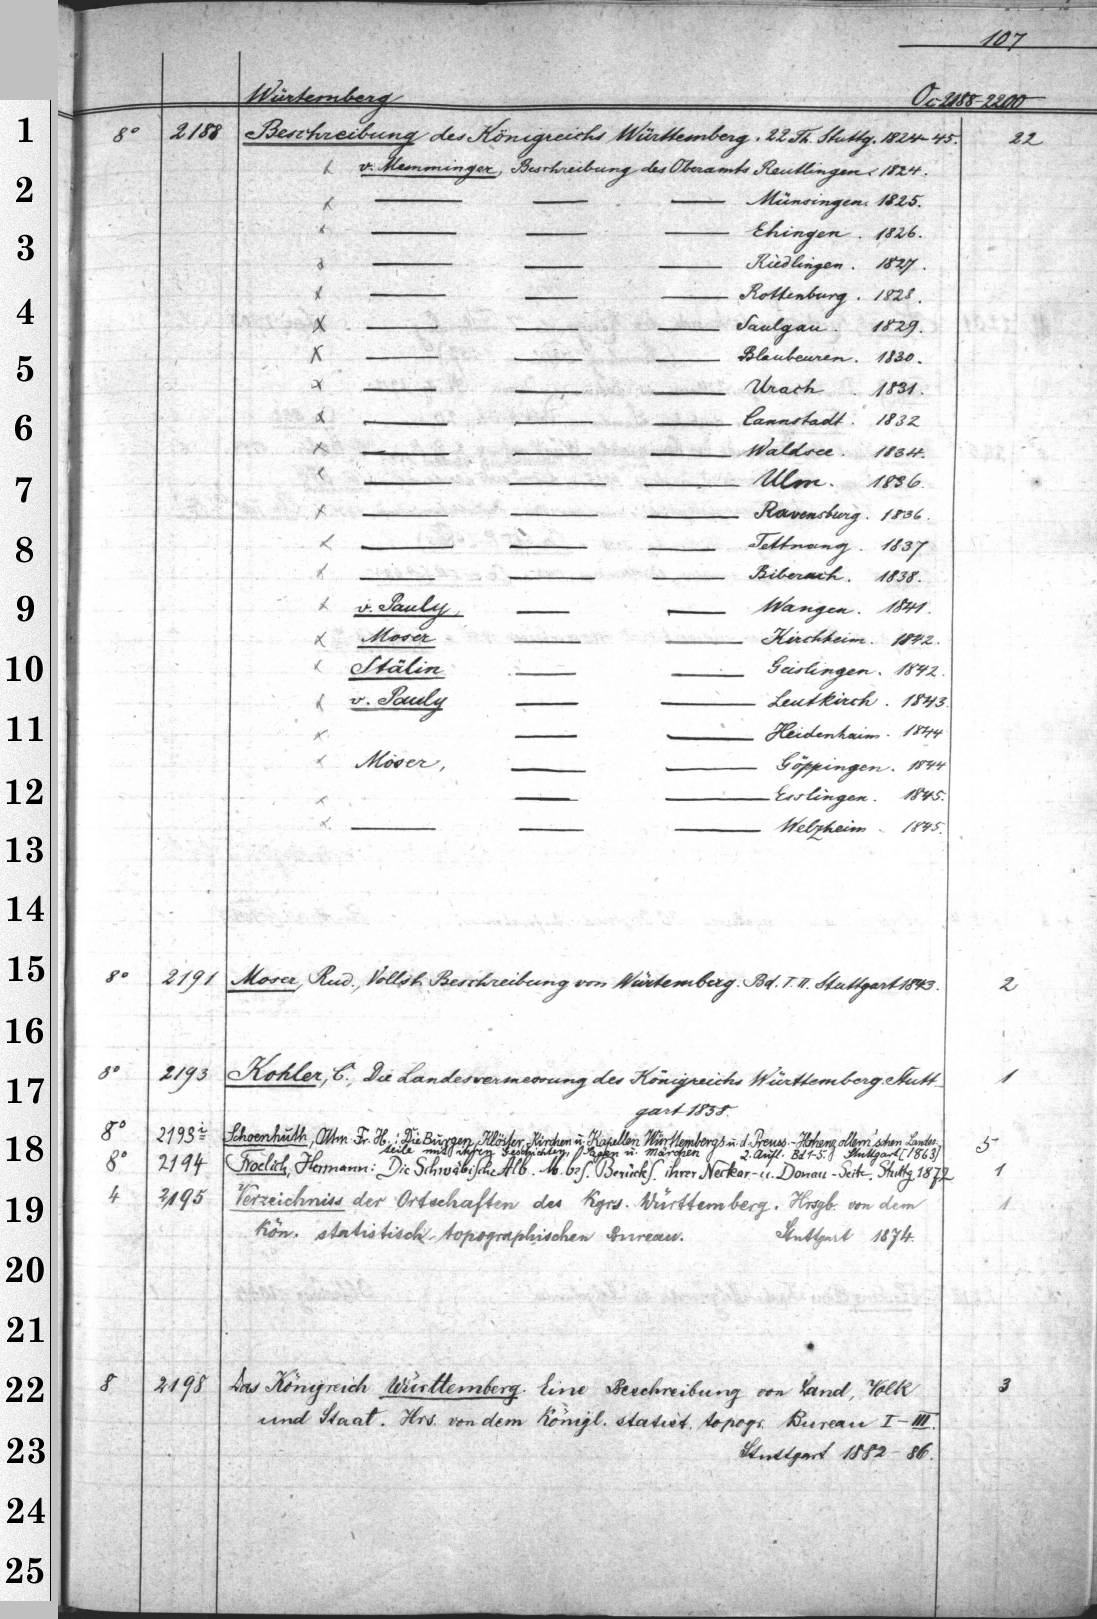 107
Würtemberg Oc 2188-2200
1
8° 2188 Beschreibung des Königreichs Württemberg. 22 Th. Stuttg. 1824-45. 22
x v. Memminger, Beschreibung des Oberamts Reutlingen. 1824.
2
x — — — Münsingen. 1825.
x — — — Ehingen. 1826.
3
x — — — Riedlingen. 1827.
x — — — Rottenburg. 1828.
4
x — — — Saulgau. 1829.
x — — — Blaubeuren. 1830.
5
x — — — Urach. 1831.
x — — — Cannstadt. 1832
6
x — — — Waldsee. 1834.
x — — — Ulm. 1836.
7
x — — — Ravensburg. 1836.
x — — — Tettnang. 1837
8
x — — — Biberach. 1838.
x v. Pauly, — — Wangen. 1841.
9
x Moser — — Kirchheim. 1842.
x Stälin — — Geislingen. 1842.
10
x v. Pauly — — Leutkirch. 1843.
x — — Heidenheim. 1844
11
x Moser, — — Göppingen. 1844
x — — Esslingen. 1845.
12
x — — — Welzheim. 1845.
13
14
15
8° 2191 Moser, Rud., Vollst. Beschreibung von Würtemberg. Bd. I. II. Stuttgart 1843. 2
16
8° 2193 Kohler, C., Die Landesvermessung des Königreichs Württemberg. Stutt- 1
17
gart 1858.
8° 2193 i Schoenhuth, Ottm. Fr. H.: Die Burgen, Klöster, Kirchen u. Kapellen Württembergs u. d. Preuss.-Hohenzollern'schen Landes- 5
18
teile mit ihren Geschichten, Sagen u. Märchen 2. Aufl. Bd 1-5. Stuttgart [1863]
8° 2194 Froelich, Hermann: Die Schwäbische Alb. M. bes. Berücks. ihrer Neckar- u. Donau-Seite. Stuttg 1872 1
4 2195 Verzeichniss der Ortschaften des Kgrs. Württemberg. Hrsgb. von dem 1
19
Kön. statistisch-topographischen Bureau. Stuttgart 1874.
20
21
22
8 2198 Das Königreich Württemberg. Eine Beschreibung von Land, Volk 3
und Staat. Hrs. von dem Königl. statist. topogr. Bureau I-III.
23
Stuttgart 1882-86.
24
25